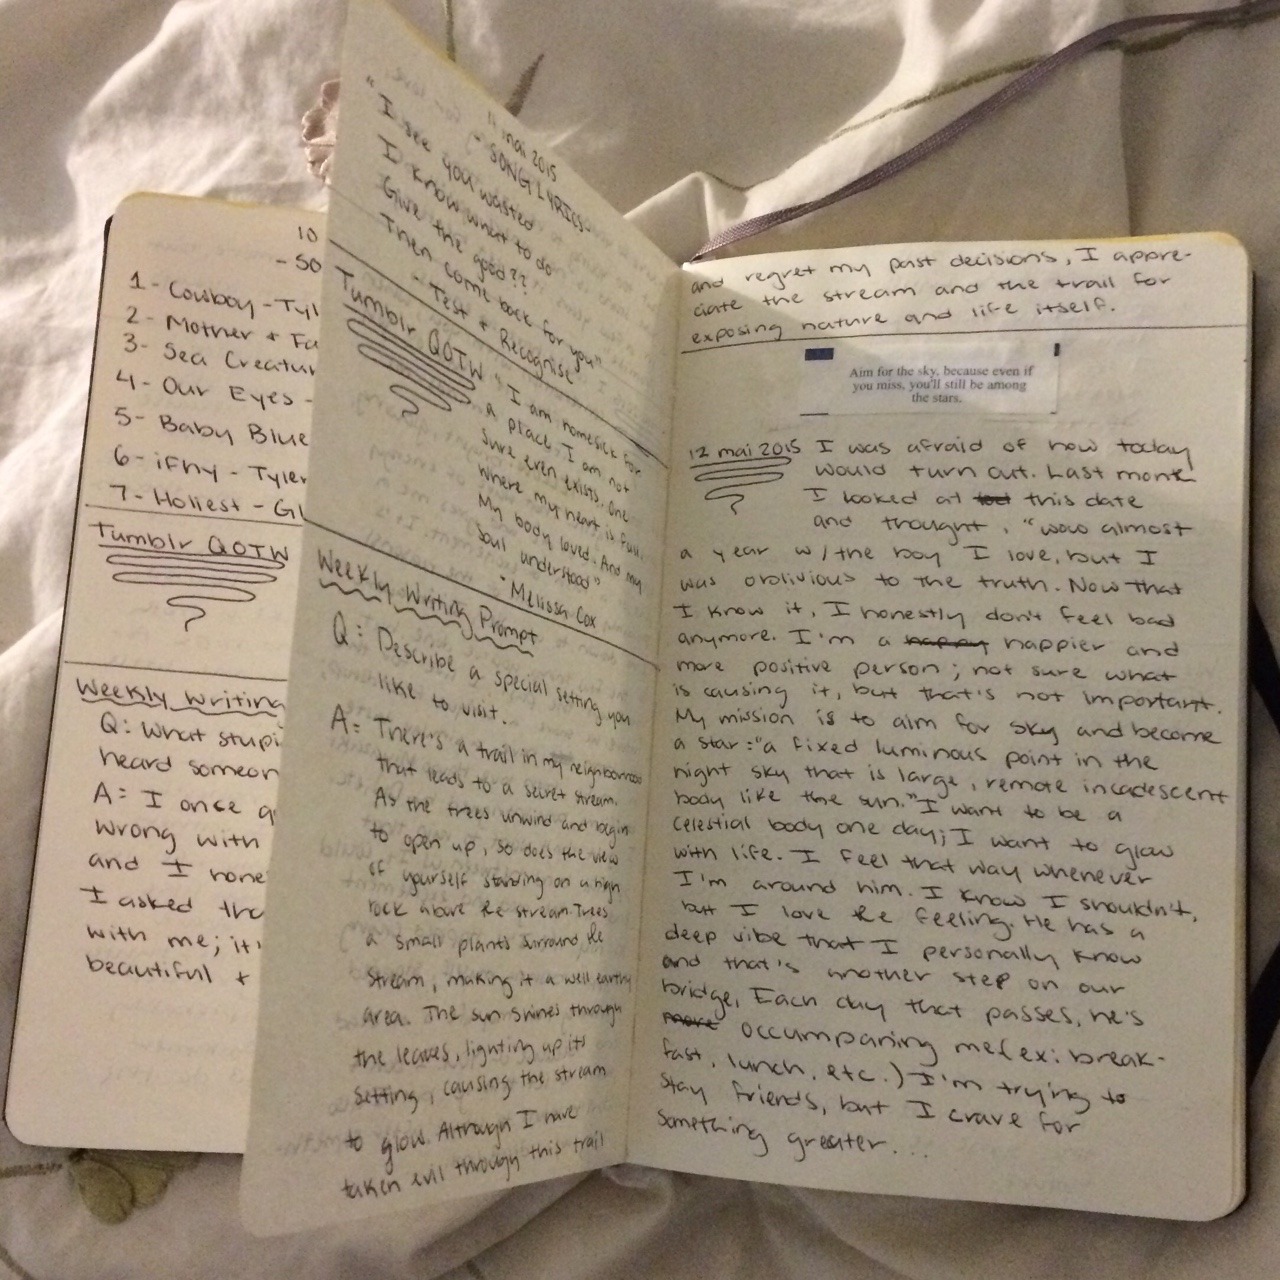 10
- SO
1- Cowboy - Tyl
2- Mother + Fa
3- Sea Creatur
4- Our Eyes -
5- Baby Blue
6- iFHy - Tyler
7- Holiest - Gl
Tumblr QOTW
Weekly Writing
Q: What stupi
heard someon
A: I once
wrong with
and I hone
I asked tha
with me; it'
beautiful +
11 mai 2015
- SONG LYRICS
"I see you wasted
I know what to do
Give the good??
Then come back for you"
- Test & Recognise
Tumblr QOTW
"I am homesick for
a place I am not
sure even exists. One
where my heart is full.
My body loved. And my
soul understood"
- Melissa Cox
Weekly Writing Prompt
Q: Describe a special setting you
like to visit.
A: There's a trail in my neighborhood
that leads to a secret stream.
As the trees unwind and begin
to open up, so does the view
of yourself standing on a high
rock above the stream. Trees
a small plants surround the
stream, making it a well earthy
area. The sun shines through
the leaves, lighting up its
setting, causing the stream
to glow. Although I have
taken evil through this trail
and regret my past decisions, I appre-
ciate the stream and the trail for
exposing nature and life itself.
Aim for the sky, because even if
you miss, you'll still be among
the stars.
12 mai 2015 I was afraid of how today
would turn out. Last month
I looked at this date
and thought, "wow almost
a year w/the boy I love, but I
was oblivious to the truth. Now that
I know it, I honestly don't feel bad
anymore. I'm a happy happier and
more positive person; not sure what
is causing it, but that's not important.
My mission is to aim for sky and become
a star: "a fixed luminous point in the
night sky that is large, remote incadescent
body like the sun." I want to be a
celestial body one day; I want to glow
with life. I feel that way whenever
I'm around him. I know I shouldn't,
but I love the feeling. He has a
deep vibe that I personally know
and that's another step on our
bridge. Each day that passes, he's
more occumpaning me (ex: break-
fast, lunch, etc.) I'm trying to
stay friends, but I crave for
something greater...